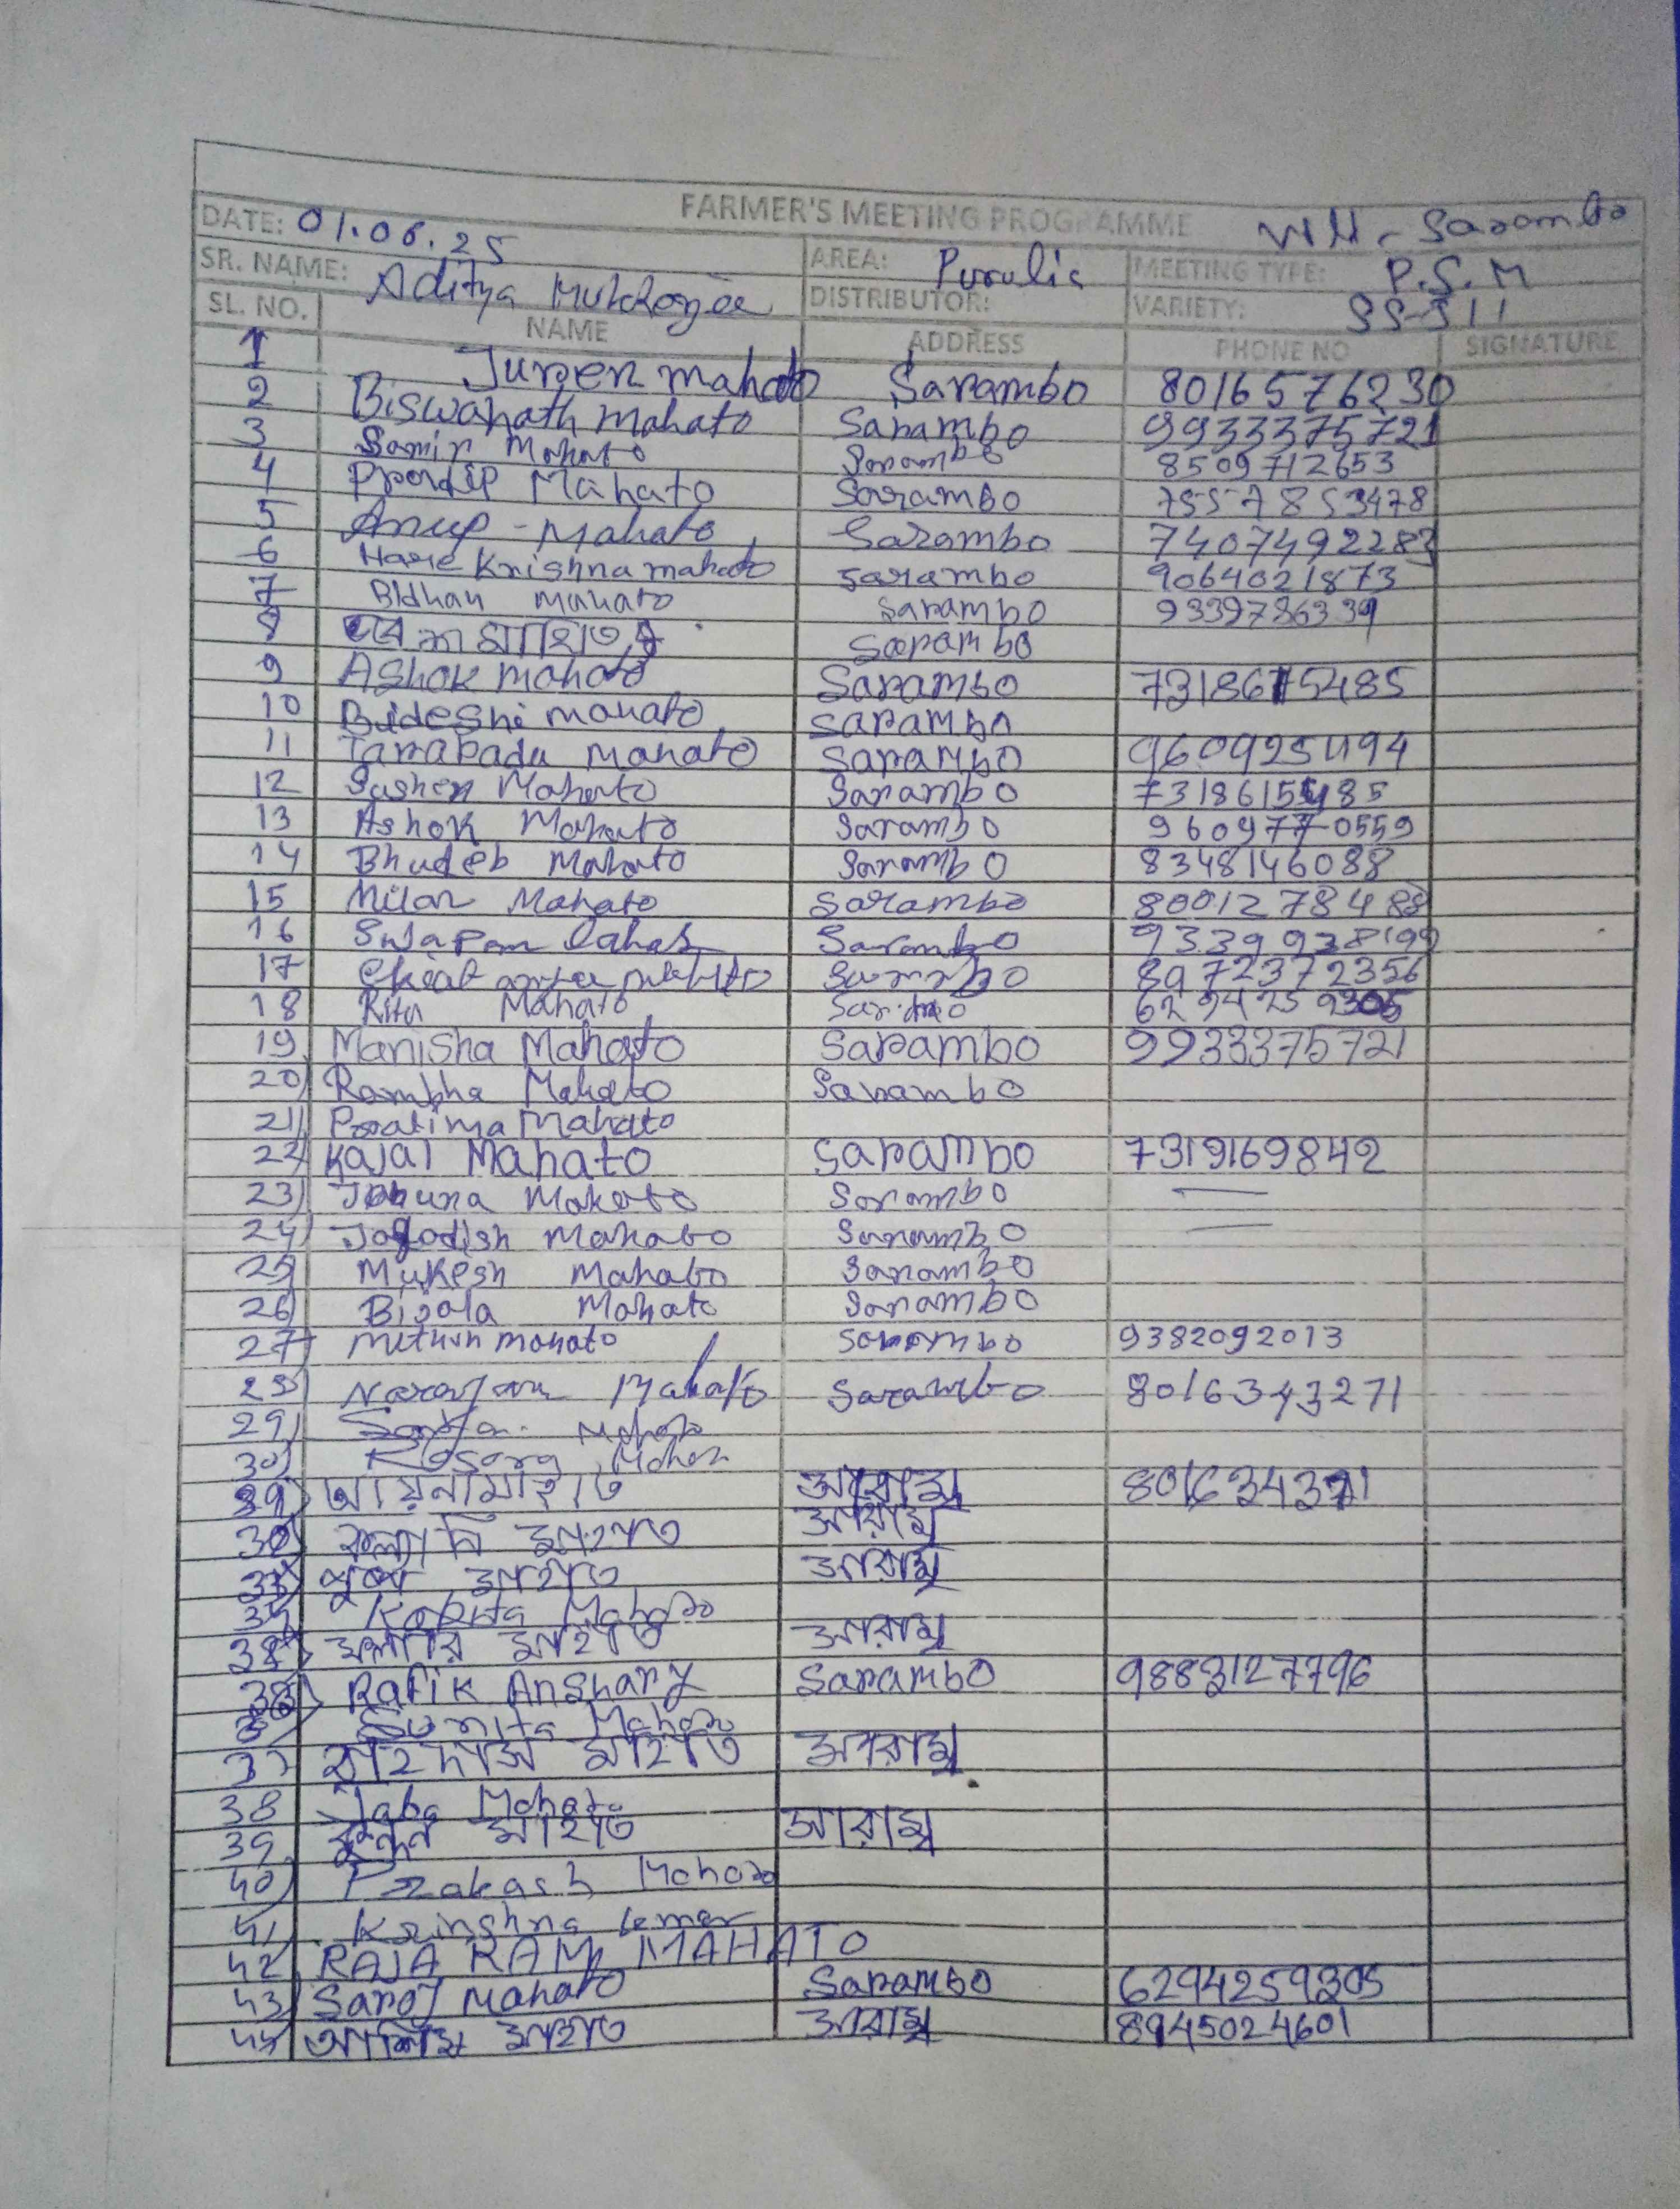 FARMER'S MEETING PROGRAMME Vill - Sarambo
DATE: 01.06.25 AREA: Purulia MEETING TYPE: P.S.M
SR. NAME: Aditya Mukherjee DISTRIBUTOR: VARIETY: SS-511
SL. NO. NAME ADDRESS PHONE NO SIGNATURE
1 Mahato Sarambo 8016576230
2 Biswanath Mahato Sarambo 9933375721
3 Samir Mahato Sarambo 8509712653
4 Pordip Mahato Sarambo 7557853478
5 Anup - Mahato Sarambo 7407492283
6 Hare Krishna mahato Sarambo 9064021873
7 Bidhan Mahato Sarambo 9339736339
8 Sarambo
9 Ashok Mahato Sarambo
10 Bideshi Mahato Sarambo
11 Tarapada Mahato Sarambo 9609254194
12 Sushen Mahato Sarambo 7318615485
13 Ashok Mahato Sarambo 9609770559
14 Bhudeb Mahato Sarambo 8348146088
15 Milan Mahato Sarambo
16 Sarambo
17
18 Rita Mahato
19 Manisha Mahato Sarambo 9933375721
20) Rambha Mahato Sarambo
21) Pratima Mahato
22) Kajal Mahato Sarambo 7319169842
23) Mahato Sarambo
24) Jogodish Mahato Sarambo
25) Mukesh Mahato Sarambo
26) Bijola Mahato Sarambo
27) Mithun Mahato Sarambo 9382092013
28) Narayan Mahato Sarambo 8016343271
29) Mahato
30)
আয়না মাহাত সারাম্বু
মাহাত সারাম্বু
পুষ্প মাহাত সারাম্বু
Kabita Mahato
মাহাত সারাম্বু
Rafik Anshary Sarambo 9883127796
Sunita Mahato
মাহাত সারাম্বু
38 Jaba Mahato
39 মাহাত সারাম্বু
40) Prakash Mahato
41 Krinshna kumar
42 RAJA RAM MAHATO
43) Saroj Mahato Sarambo 6294259305
44) আশিষ মাহাত সারাম্বু 8945024601